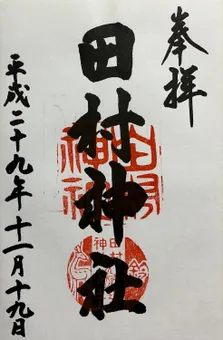 奉拝
田村神社
平成二十九年十一月十九日